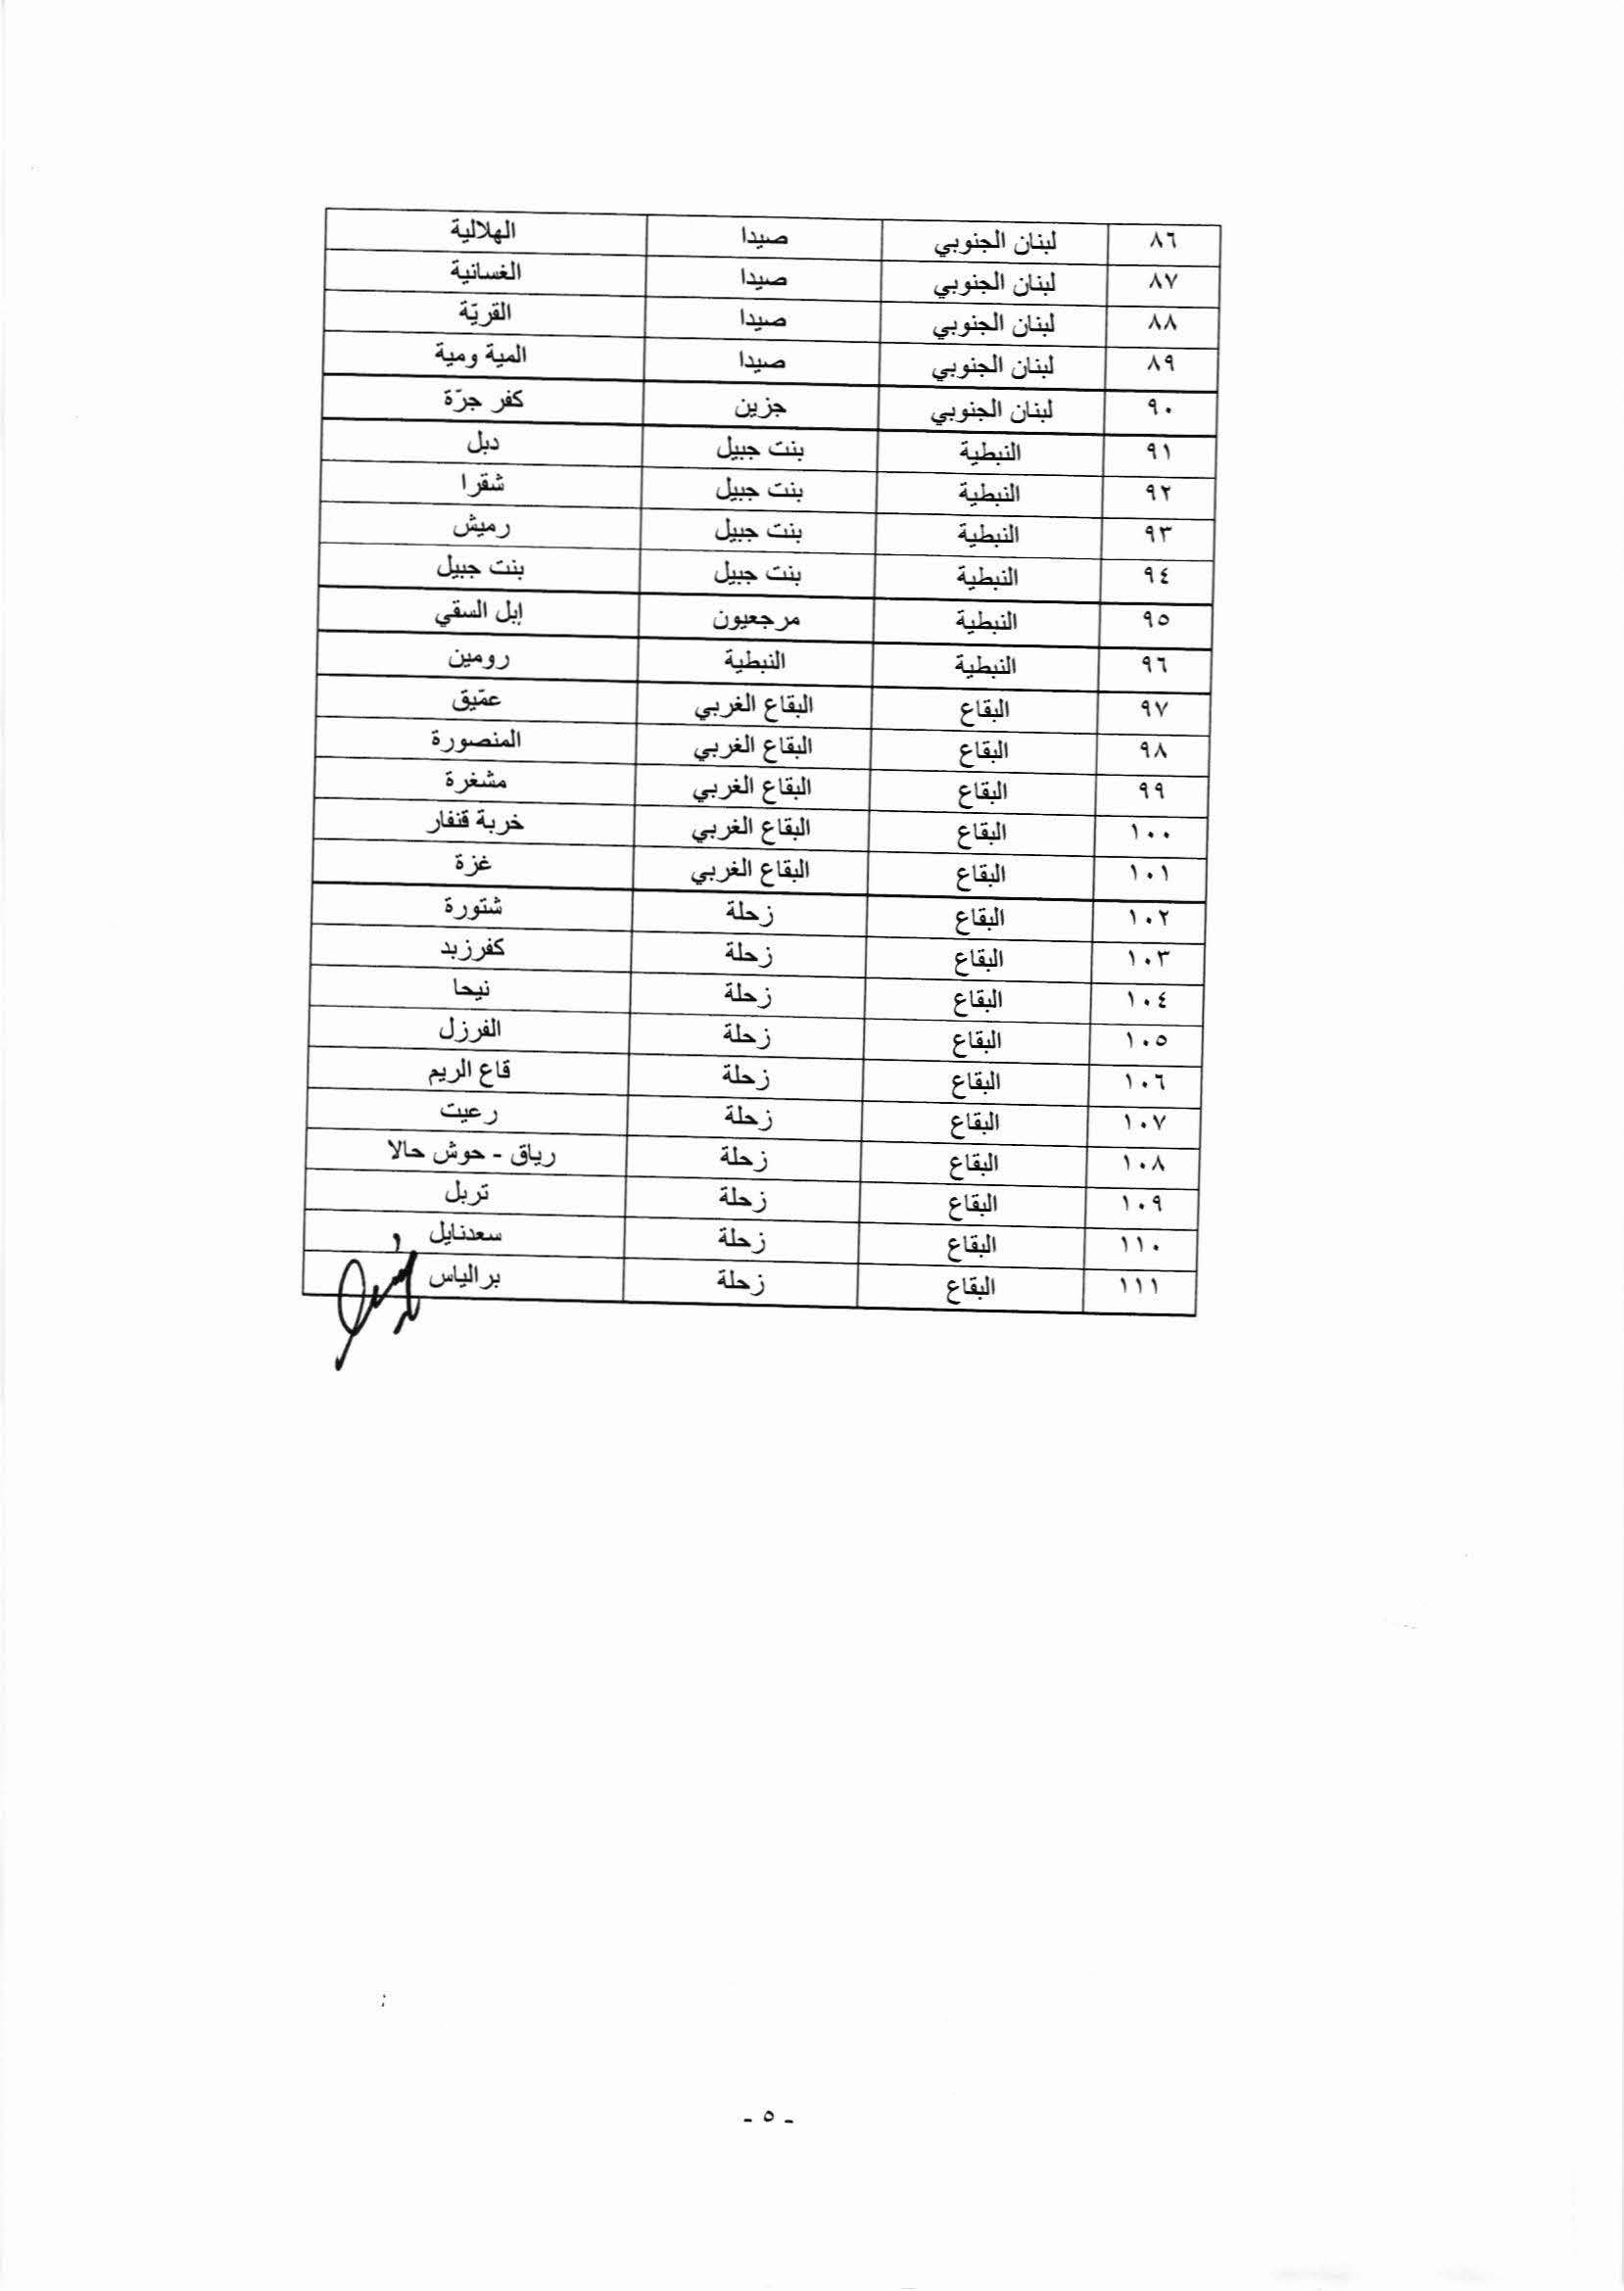 ٨٦ لبنان الجنوبي صيدا الهلالية
٨٧ لبنان الجنوبي صيدا الغسانية
٨٨ لبنان الجنوبي صيدا القريّة
٨٩ لبنان الجنوبي صيدا المية ومية
٩٠ لبنان الجنوبي جزين كفر جرّة
٩١ النبطية بنت جبيل دبل
٩٢ النبطية بنت جبيل شقرا
٩٣ النبطية بنت جبيل رميش
٩٤ النبطية بنت جبيل بنت جبيل
٩٥ النبطية مرجعيون إبل السقي
٩٦ النبطية النبطية رومين
٩٧ البقاع البقاع الغربي عمّيق
٩٨ البقاع البقاع الغربي المنصورة
٩٩ البقاع البقاع الغربي مشغرة
١٠٠ البقاع البقاع الغربي خربة قنفار
١٠١ البقاع البقاع الغربي غزة
١٠٢ البقاع زحلة شتورة
١٠٣ البقاع زحلة كفرزبد
١٠٤ البقاع زحلة نيحا
١٠٥ البقاع زحلة الفرزل
١٠٦ البقاع زحلة قاع الريم
١٠٧ البقاع زحلة رعيت
١٠٨ البقاع زحلة رياق - حوش حالا
١٠٩ البقاع زحلة تربل
١١٠ البقاع زحلة سعدنايل
١١١ البقاع زحلة بر الياس
- ٥ -